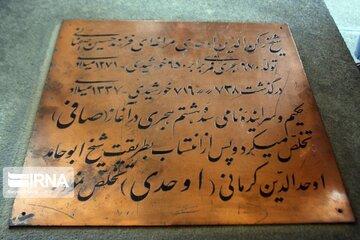 شیخ رکن الدین اوحدی مراغه‌ای فرزند حسین اصفهانی
تولد ۶۷۰ هجری قمری برابر ۶۵۰ خورشیدی - ۱۲۷۱ میلادی
درگذشت ۷۳۸ == ۷۱۶ خورشیدی - ۱۳۳۷ میلادی
حکیم و سراینده نامی سده هشتم هجری در آغاز (صافی)
تخلص میکرد و پس از انتساب بطریقت شیخ ابو حامد
اوحدالدین کرمانی (اوحدی) تخلص نمود
IRNA